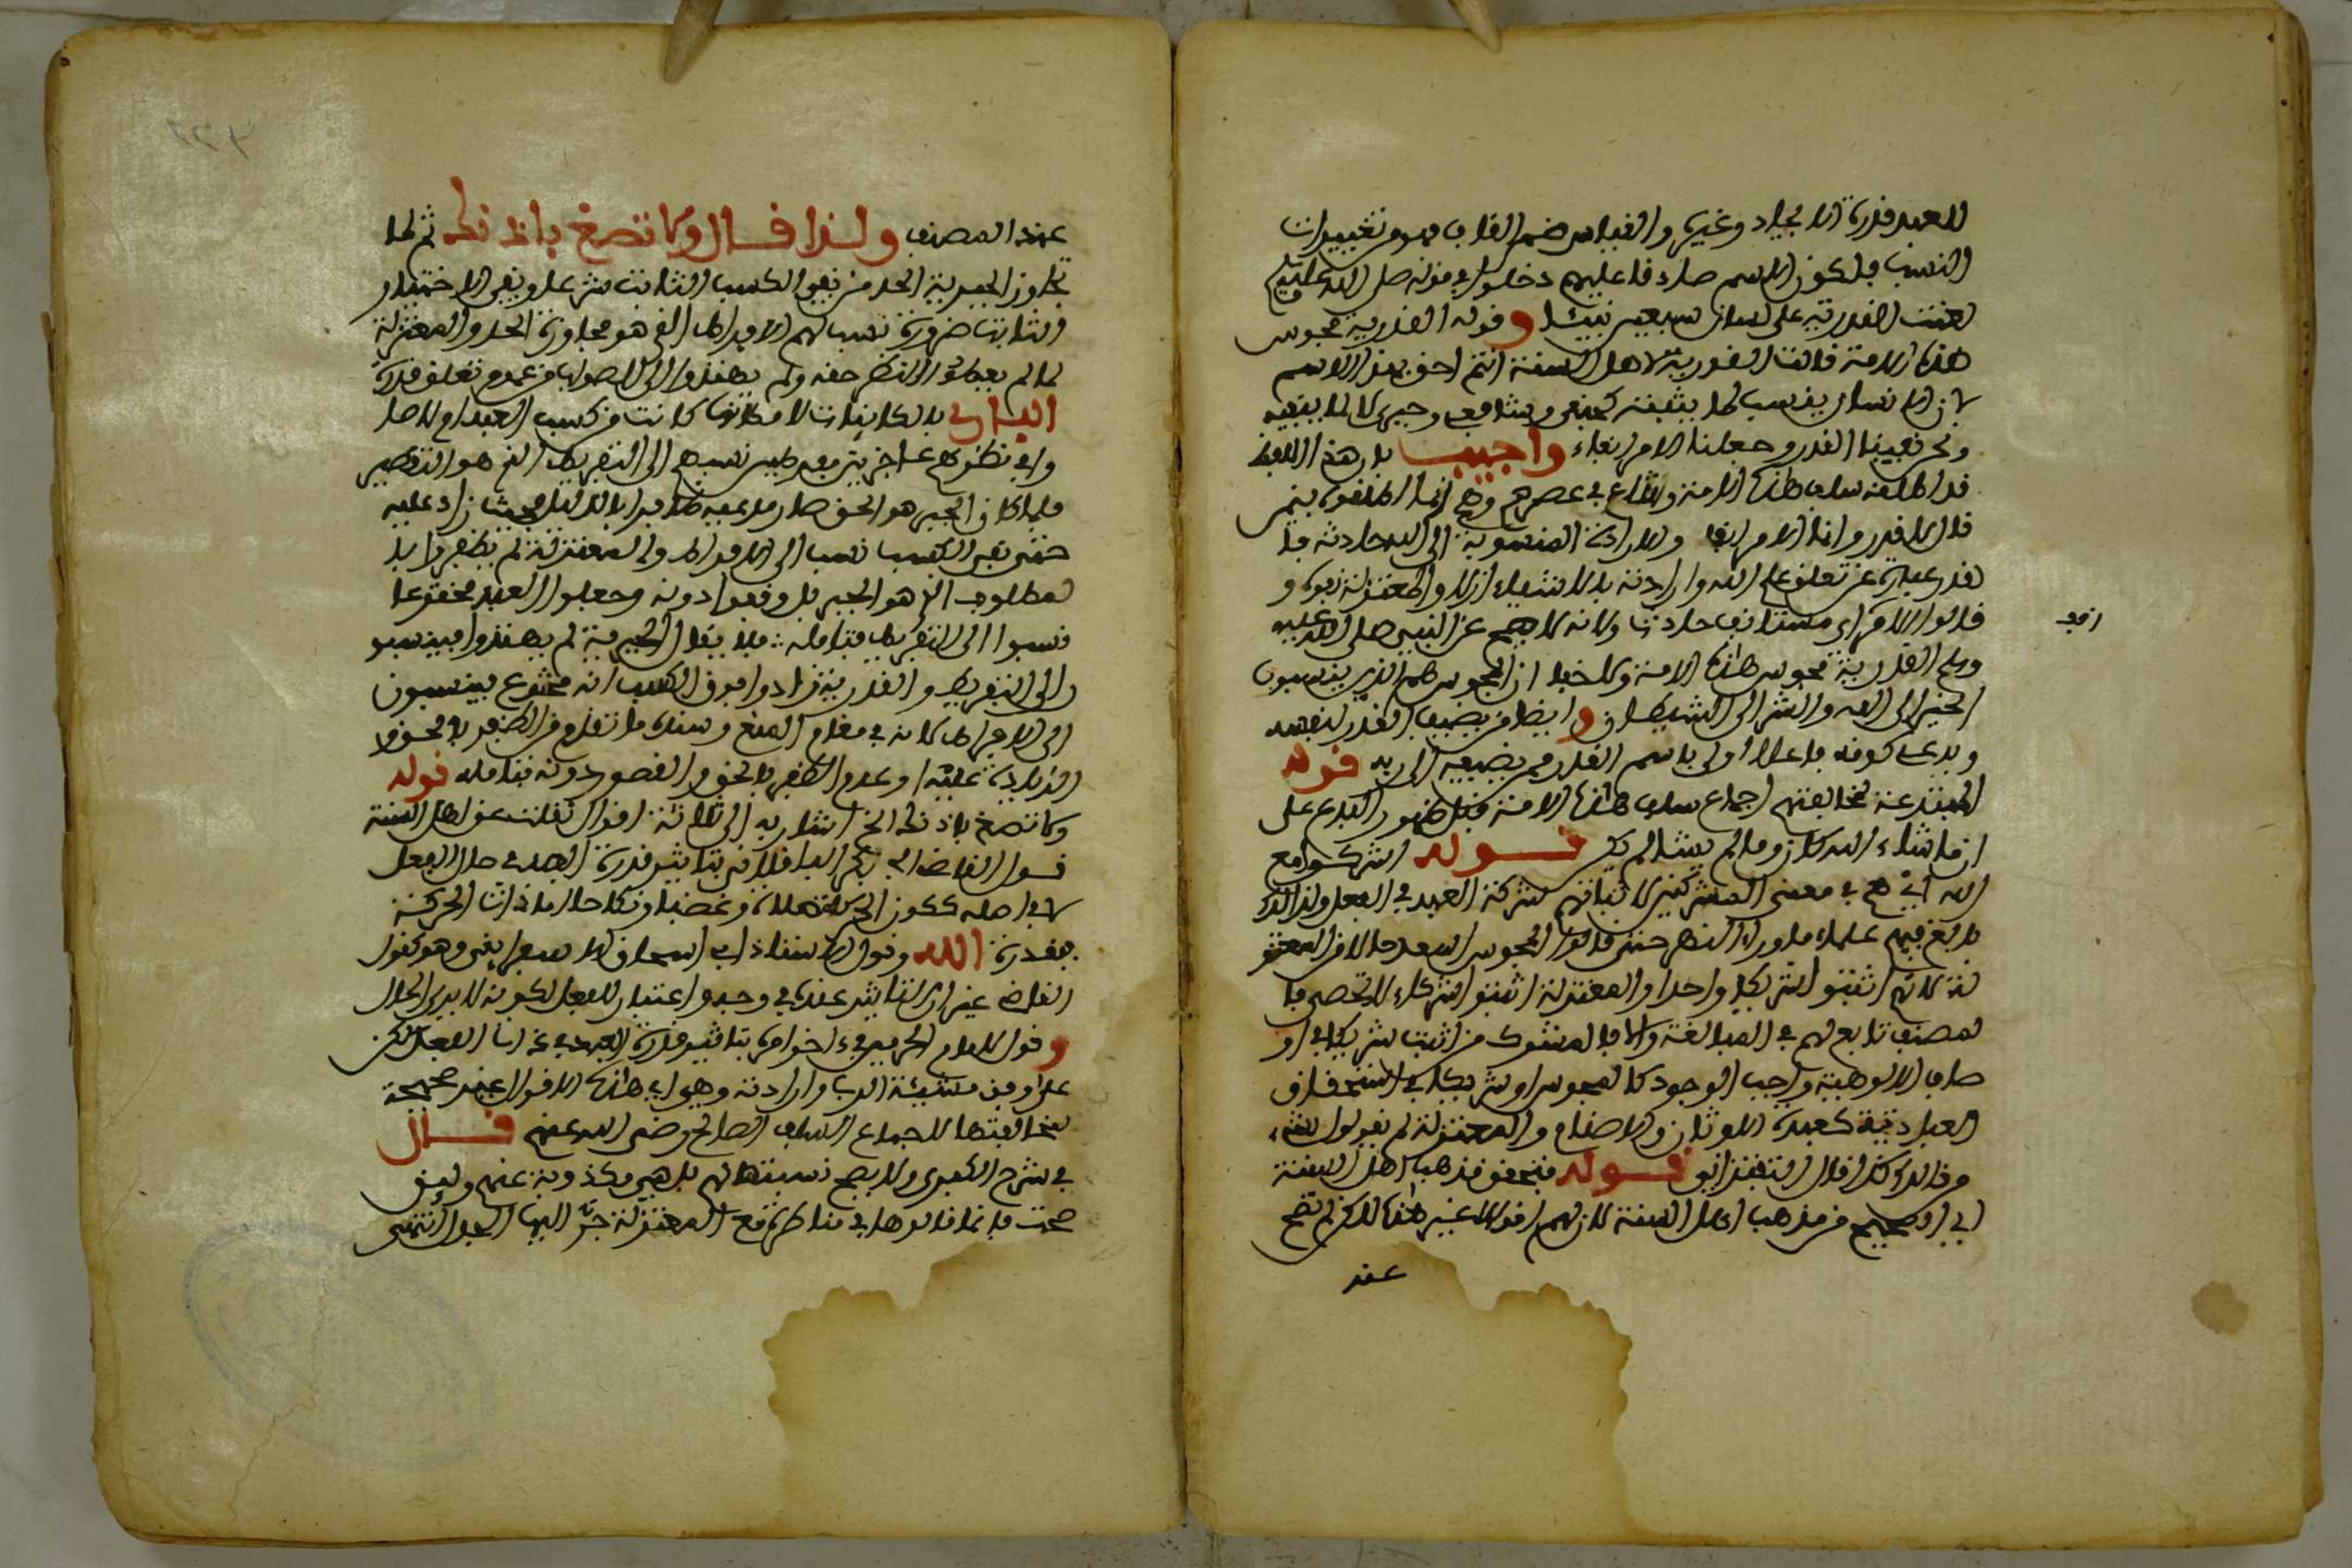 للعبد قدرة الايجاد وغيره والقياس ضم القاف فهو من تغييرات
النسب فلكون الاسم صار ذما عليهم دخلوا في قوله صلى الله عليه وسلم
لعنت القدرية على لسان سبعين نبيئا وقوله القدرية مجوس
هذه الامة قالت القدرية لاهل السنة انتم احق بهذا الاسم
لان الانسان ينسب لما يثبته كحنفي وشافعي وجبري لا لما ينفيه
ونحن نفينا القدر وجعلنا الامر انفا واجيب بان هذا اللفظ
قد اطلقه سلف هذه الامة وشاع في عصرهم وهم انما اطلقوه بمن
قال لا قدر وانما الامر انف والارادة المنسوبة الى الله حادثة فا
لقدر عبارة عن تعلق علم الله وارادته بالاشياء ازلا والمعتزلة نفوه و
قالوا الامر اي مستانف حادث ولانه لما صح عن النبي صلى الله عليه
انف
وسلم القدرية مجوس هذه الامة ولا خفا ان المجوس هم الذين ينسبون
الخير الى الله والشر الى الشيطان وايضا من يضيف القدر لنفسه
ويدعي كونه فاعلا اولى باسم القدر ممن يضيفه الى ربه قوله
المبتدعة لمخالفتهم اجماع سلف هذه الامة قبل ظهور البدع على
ان ما شاء الله كان وما لم يشا لم يكن قوله اشركوا مع
الله اي هم في معنى المشركين لاثباتهم شركة العبد في الفعل ولذلك
بالغ فيهم علماء ما وراء النهر حتى قالوا المجوس اسعد حالا من المعتز
لة لانهم اثبتوا شريكا واحدا والمعتزلة اثبتوا شركاء لا تحصى فا
لمصنف تابع لهم في المبالغة والا فالمشرك من اثبت شريكا في او
صاف الالوهية واجب الوجود كالمجوس او شريكا في استحقاق
العبادة كعبدة الاوثان والاصنام والمعتزلة لم يقولوا بشيء
من ذلك كذا قال التفتزاني قوله فتحقق مذهب اهل السنة
اي الصحيح من مذهب اهل السنة لان لهم اقوالا غير هذا لكن لم تصح
عند
عند المصنف ولذا قال ولا تصغ باذنك ثم لما
تجاوز الجبرية الحد من نفي الكسب الثابت شرعا ونفي الاختيار
الثابت ضرورة نسب لهم الافراط الذي هو مجاوزة الحد والمعتزلة
لما لم يعطوا النظر حقه ولم يهتدوا الى الصواب من عدم تعلق قدرة
الباري بالكائنات لامكانها كانت من كسب العبد ام لا صا
وا في نظرهم عاجزين مفرطين نسبهم الى التفريط الذي هو التقصير
ولما كان الجبر هو الحق صار مدعيه ظافرا بالدليل بحيث زاد عليه
حتى نفى الكسب نسب الى الافراط والمعتزلة لم يظفروا با
لمطلوب الذي هو الجبر بل وقفوا دونه وجعلوا العبد مخترعا
نسبوا الى التفريط فتامله فلا يقال الجبرية لم يهتدوا فينسبو
ا الى التفريط والقدرية زادوا فوق الكسب انه مخترع فينسبون
الى الافراط لانه في مقام المنع وسنده ما تقدم من الظفر بالحق و
الزيادة عليه او عدم الظفر بالحق والقصور دونه فتامله قوله
ولا تصغ باذنك الخ اشار به الى ثلاثة اقوال نقلت عن اهل السنة
قول القاضي ابي بكر الباقلاني بتاثير قدرة العبد في حال الفعل
لا في اصله ككون الحركة صلاة وغصبا ونكاحا اما ذات الحركة
فبقدرة الله وقول الاستاذ ابي اسحاق الاسفرايني وهو كقول
القاضي غير ان التاثير عنده في وجه واعتبار للفعل لكونه لا يرى الحال
وقول الامام الحرمين في اخر امره بتاثير قدرة العبد في ذات الفعل لكن
على وفق مشيئة الرب وارادته وهي اي هذه الاقوال غير صحيحة
لمخالفتها لاجماع السلف الصالح رضي الله عنهم قال
في شرح الكبرى ولا يصح نسبتها لهم بل هي مكذوبة عنهم ولئن
صحت فانما قالوها في مناظرة مع المعتزلة جر اليها الجدل انتهى